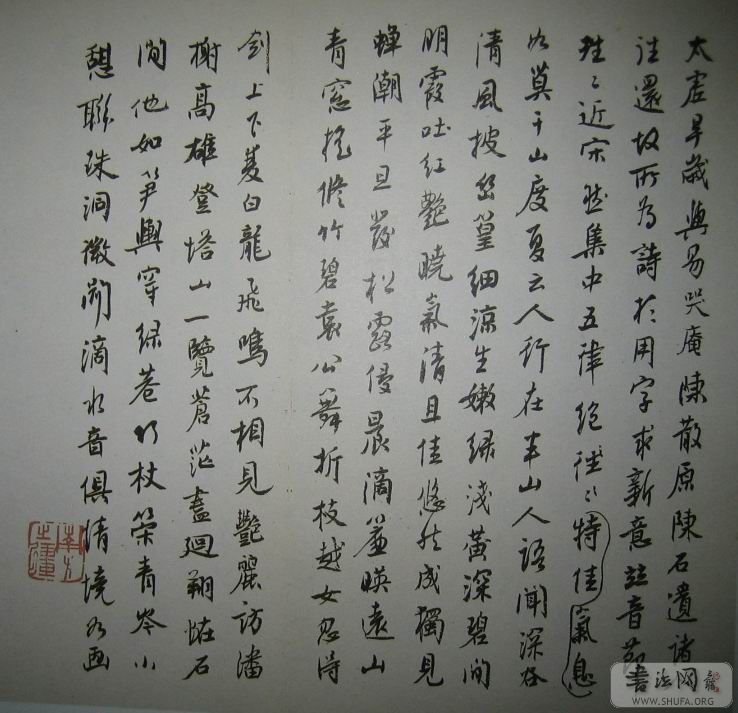 太虛早歲與易哭庵陳散原陳石遺諸
往還故所為詩於用字求新意音節
往〻近宋然集中五律絕往〻特佳氣息
如莫干山度夏云人行在半山人語聞深谷
清風披篁細涼生嫩綠淺黃深碧間
明霞吐紅艷曉氣清且佳悠然成獨見
蟬潮平旦發松露侵晨滴簾映遠山
青窗搖修竹碧袁公舞折枝越女忽浔
劍上下白龍飛鳴不相見艷麗訪潘
榭高雄登塔山一覽蒼茫盡迴翔恠石
間他如筍輿穿綠巷竹杖策青岑小
憩聯珠洞微聞滴水音俱情境如画
書法网
WWW.SHUFA.ORG